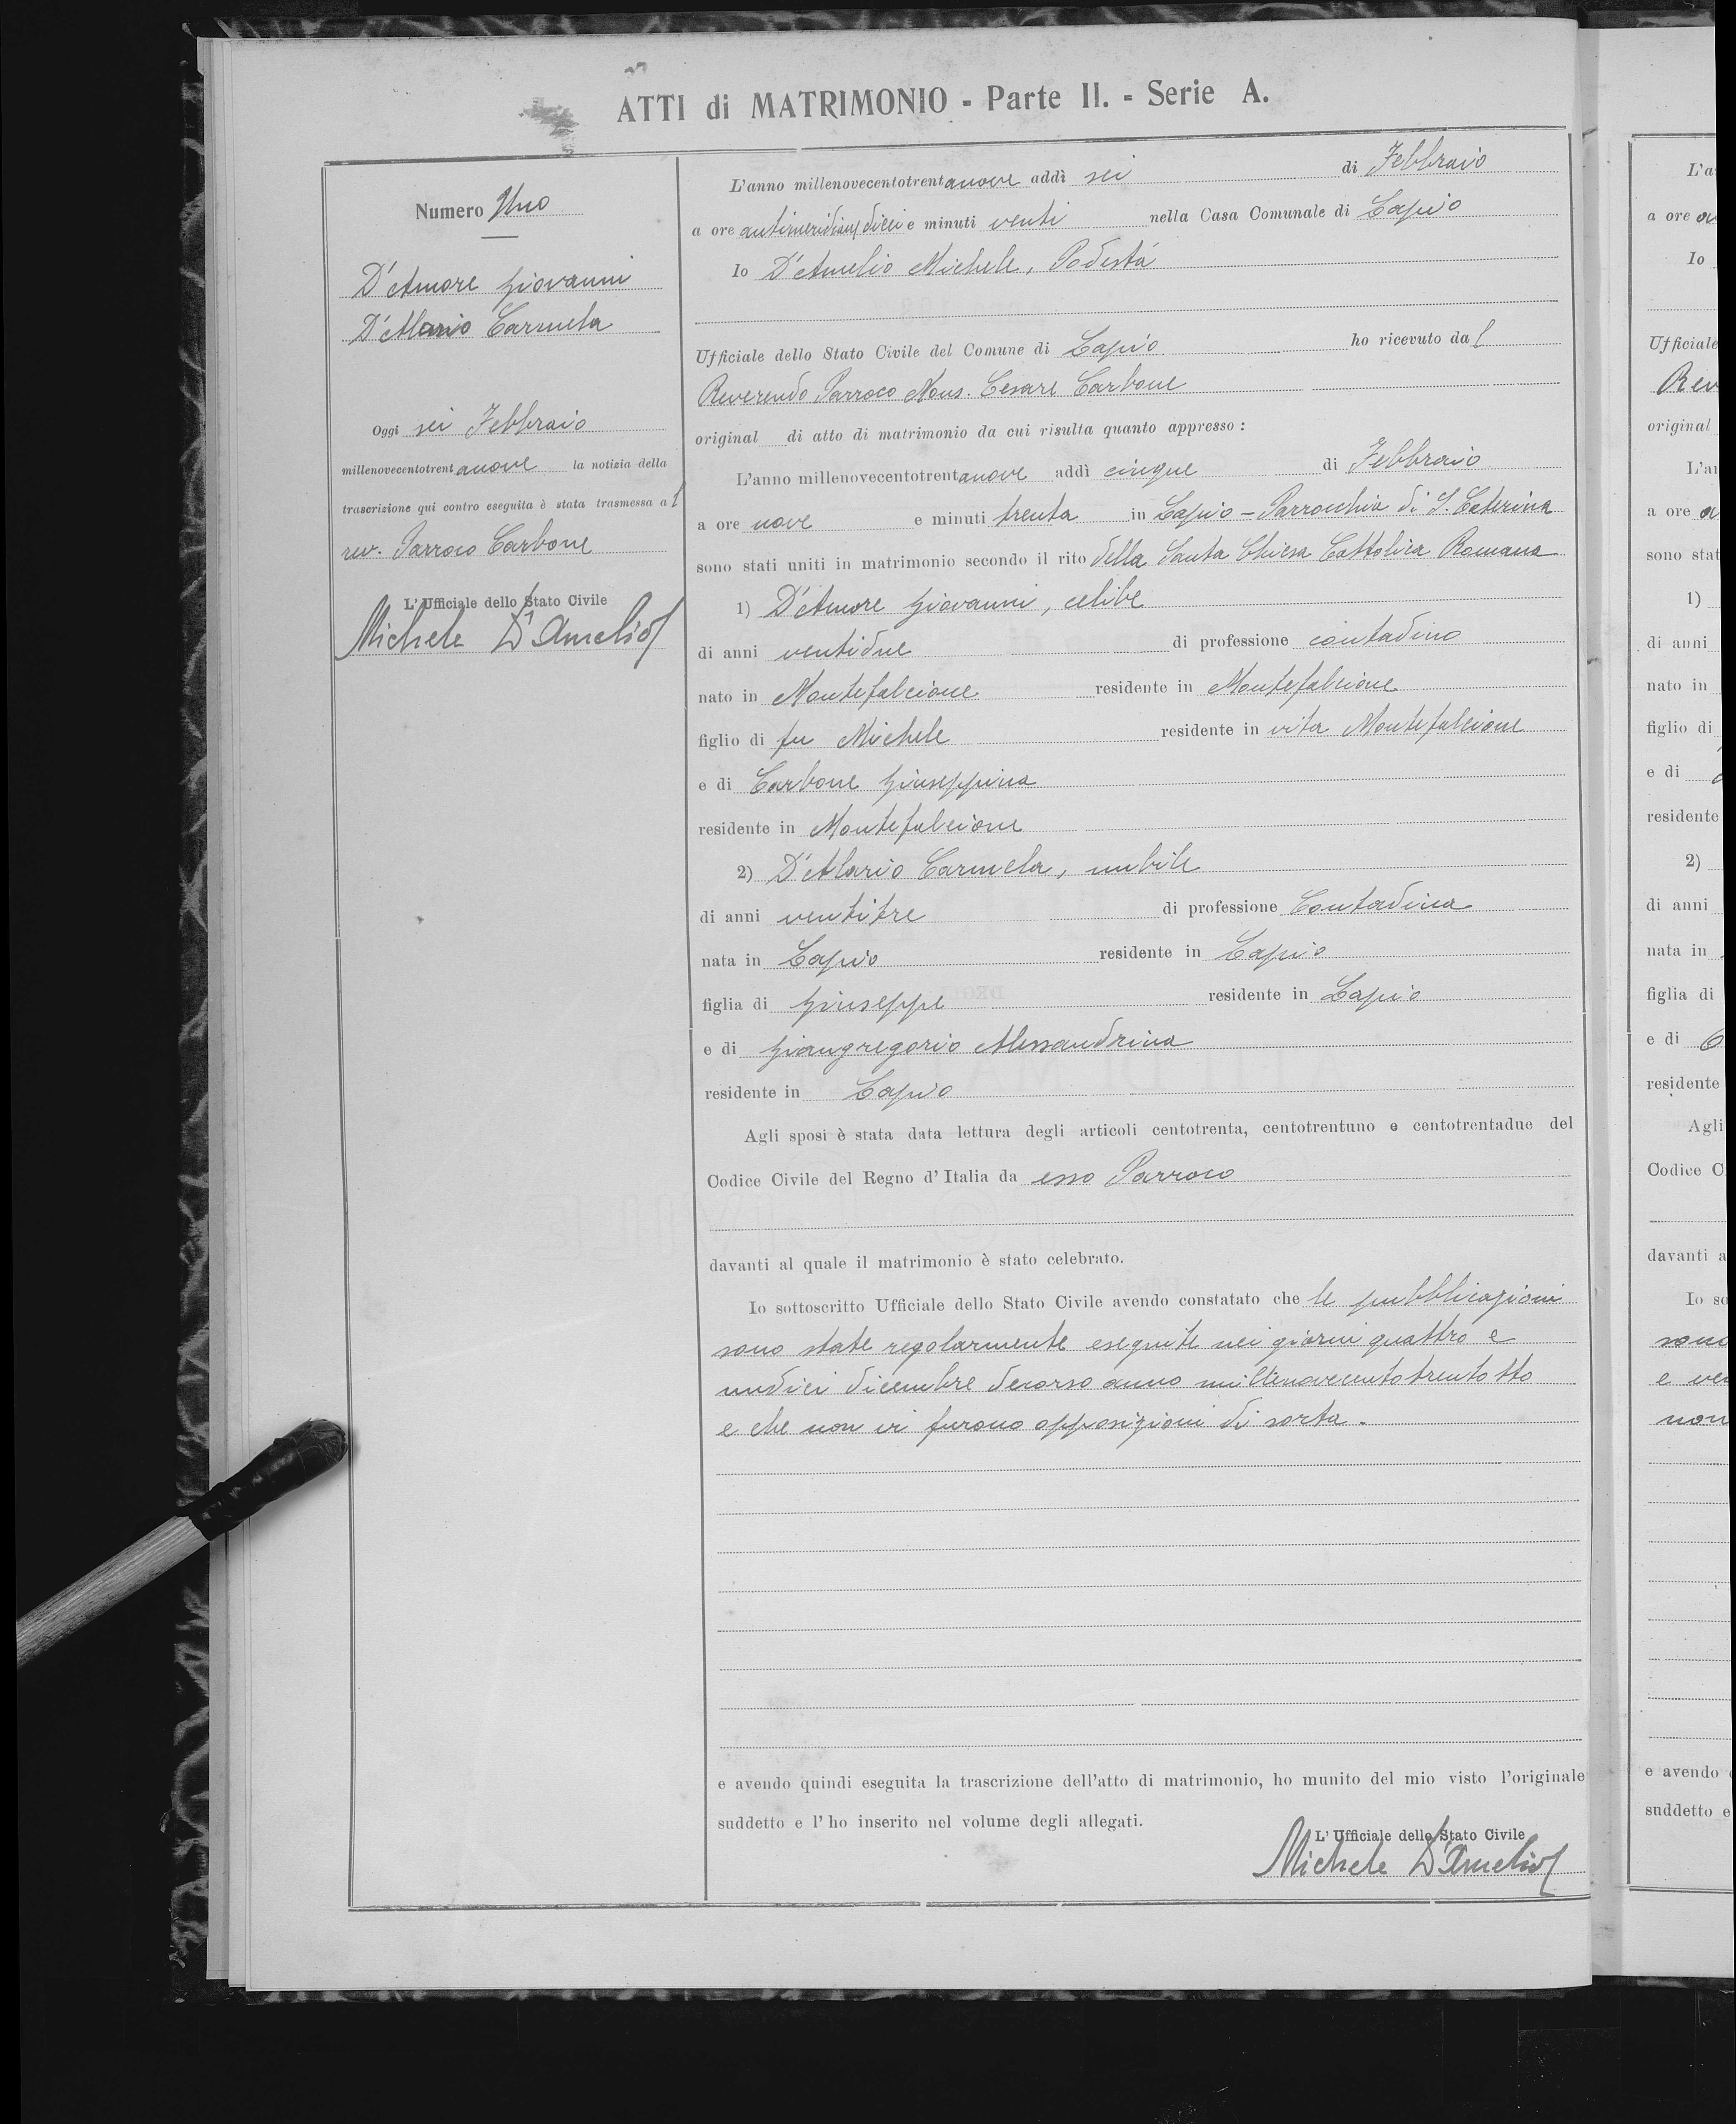 ATTI di MATRIMONIO - Parte II. - Serie A.
Numero Uno
D'Amore Giovanni
D'Alario Carmela
Oggi sei Febbraio
millenovecentotrentanove la notizia della
trascrizione qui contro eseguita è stata trasmessa al
rev. Parroco Carbone
L'Ufficiale dello Stato Civile
Michele D'Amelio
L'anno millenovecentotrentanove addì sei di Febbraio
a ore antimeridiane dieci e minuti venti nella Casa Comunale di Lapio
Io D'Amelio Michele, Podestà
Ufficiale dello Stato Civile del Comune di Lapio ho ricevuto dal
Reverendo Parroco Mons. Cesare Carbone
original di atto di matrimonio da cui risulta quanto appresso :
L'anno millenovecentotrentanove addì cinque di Febbraio
a ore nove e minuti trenta in Lapio - Parrocchia di S. Caterina
sono stati uniti in matrimonio secondo il rito della Santa Chiesa Cattolica Romana
1) D'Amore Giovanni, celibe
di anni ventidue di professione contadino
nato in Montefalcione residente in Montefalcione
figlio di fu Michele residente in vita Montefalcione
e di Carbone Giuseppina
residente in Montefalcione
2) D'Alario Carmela, nubile
di anni ventitre di professione Contadina
nata in Lapio residente in Lapio
figlia di Giuseppe residente in Lapio
e di Giangregorio Alessandrina
residente in Lapio
Agli sposi è stata data lettura degli articoli centotrenta, centotrentuno e centotrentadue del
Codice Civile del Regno d'Italia da esso Parroco
davanti al quale il matrimonio è stato celebrato.
Io sottoscritto Ufficiale dello Stato Civile avendo constatato che le pubblicazioni
sono state regolarmente eseguite nei giorni quattro e
undici dicembre decorso anno millenovecentotrentotto
e che non vi furono opposizioni di sorta.
e avendo quindi eseguita la trascrizione dell'atto di matrimonio, ho munito del mio visto l'originale
suddetto e l'ho inserito nel volume degli allegati.
L'Ufficiale dello Stato Civile
Michele D'Amelio
L'a
a ore
Io
Ufficiale
Rev
original
L'an
a ore
sono stat
1)
di anni
nato in
figlio di
e di
residente
2)
di anni
nata in
figlia di
e di
residente
Agli
Codice C
davanti a
Io so
sono
e ve
non
e avendo
suddetto e